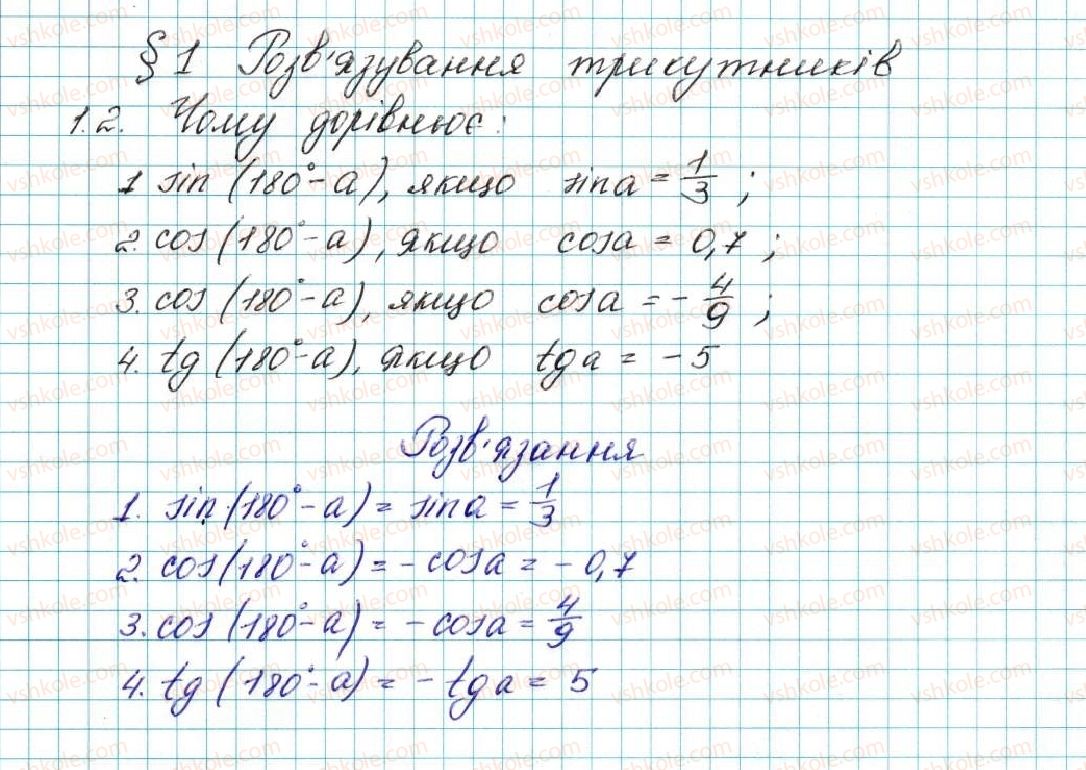 § 1 Розв'язування трикутників
1.2. Чому дорівнює:
1 sin (180° - a), якщо sin a = 1/3 ;
2. cos (180° - a), якщо cos a = 0,7 ;
3. cos (180° - a), якщо cos a = - 4/9 ;
4. tg (180° - a), якщо tg a = - 5
Розв'язання
1. sin (180° - a) = sin a = 1/3
2. cos (180° - a) = - cos a = - 0,7
3. cos (180° - a) = - cos a = 4/9
4. tg (180° - a) = - tg a = 5
vshkole.com